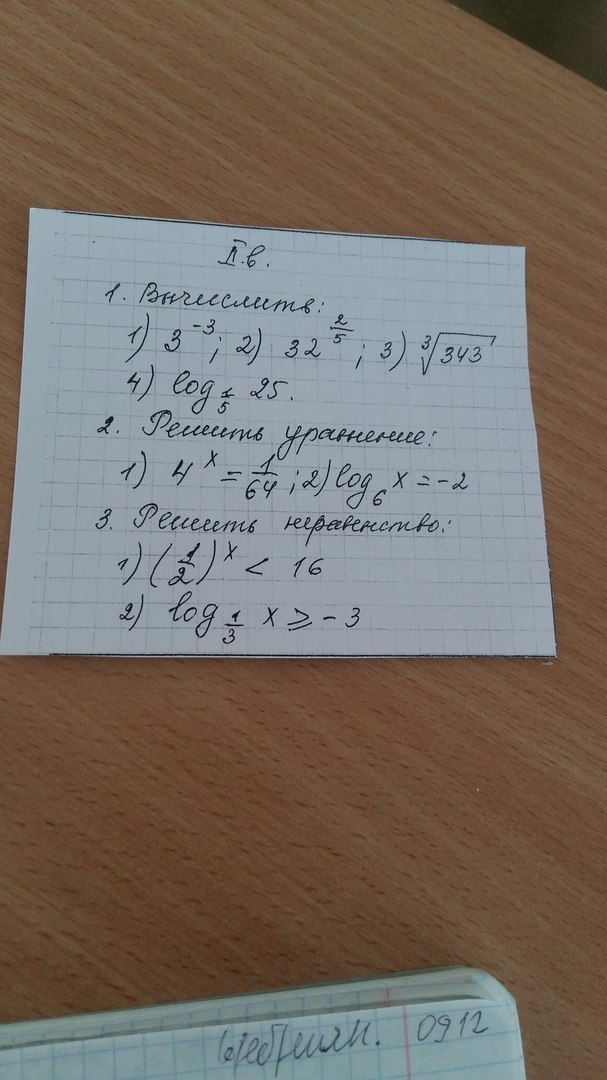 II в.
1. Вычислить:
1) 3⁻³; 2) 32^(2/5); 3) ∛343
4) log_(1/5) 25.
2. Решить уравнение:
1) 4ˣ = 1/64; 2) log₆ x = -2
3. Решить неравенство:
1) (1/2)ˣ < 16
2) log_(1/3) x ⩾ -3
0912